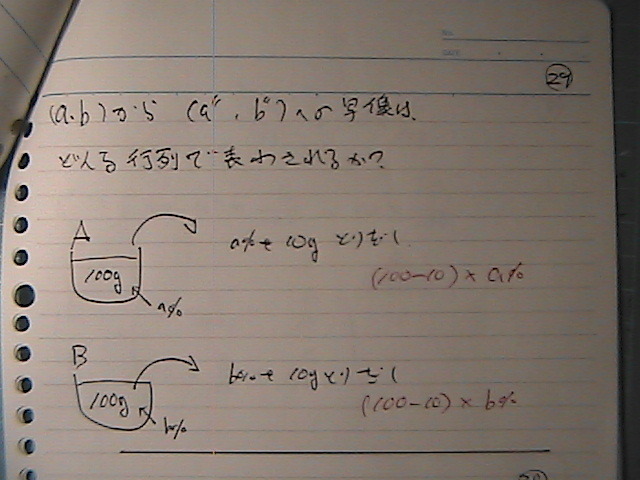 No.
DATE
29
(a.b)から (a″, b″)への写像は、
どんな行列で表わされるか?
A
100g
a%
a%を 10g とりだし
(100-10) × a%
B
100g
b%
b%を 10g とりだし
(100-10) × b%